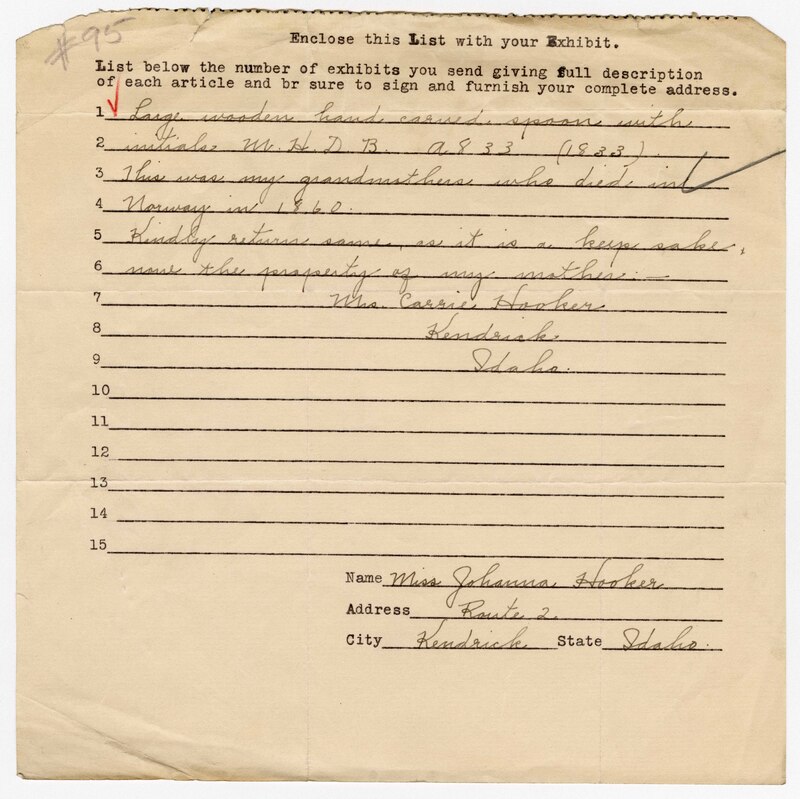 #95
Enclose this List with your Exhibit.
List below the number of exhibits you send giving full description
of each article and br sure to sign and furnish your complete address.
1 Large wooden hand carved spoon with
2 initials M. H. D. B. A 833 (1833)
3 This was my grandmothers who died in
4 Norway in 1860.
5 Kindly return same, as it is a keep sake,
6 now the property of my mother. —
7 Mrs. Carrie Hooker
8 Kendrick
9 Idaho.
10
11
12
13
14
15
Name Miss Johanna Hooker
Address Route 2.
City Kendrick State Idaho.